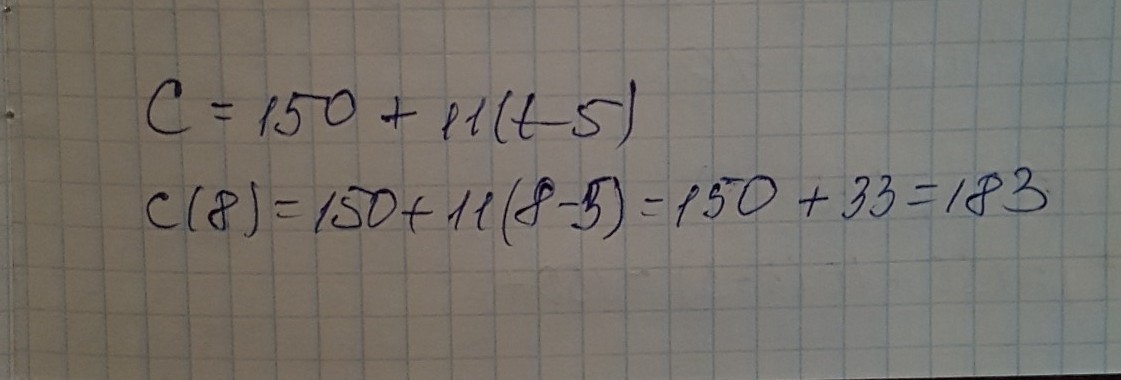 C = 150 + 11(t-5)
C(8) = 150 + 11(8-5) = 150 + 33 = 183